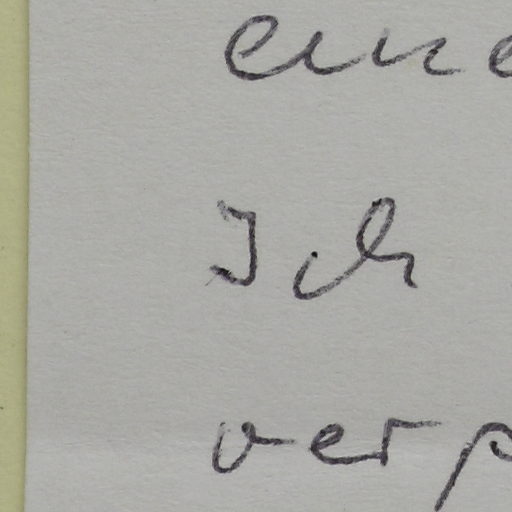 eine
Ich
verp